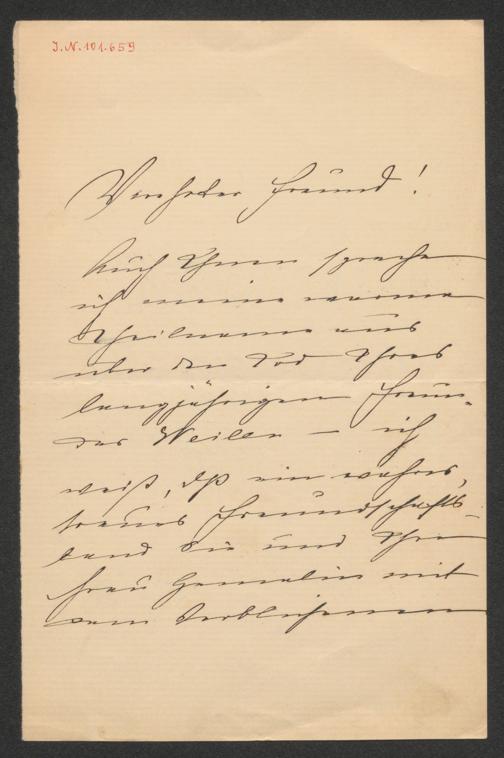 J.N.101.659
Verehrter Freund!
Auch Ihnen spreche
ich meine warme
Theilname aus
über den Tod Ihres
langjährigen Freun-
des Weilen – ich
weiß, dß ein wahres,
treues Freundschafts-
band Sie und Ihre
Frau Gemalin mit
dem Verblichenen